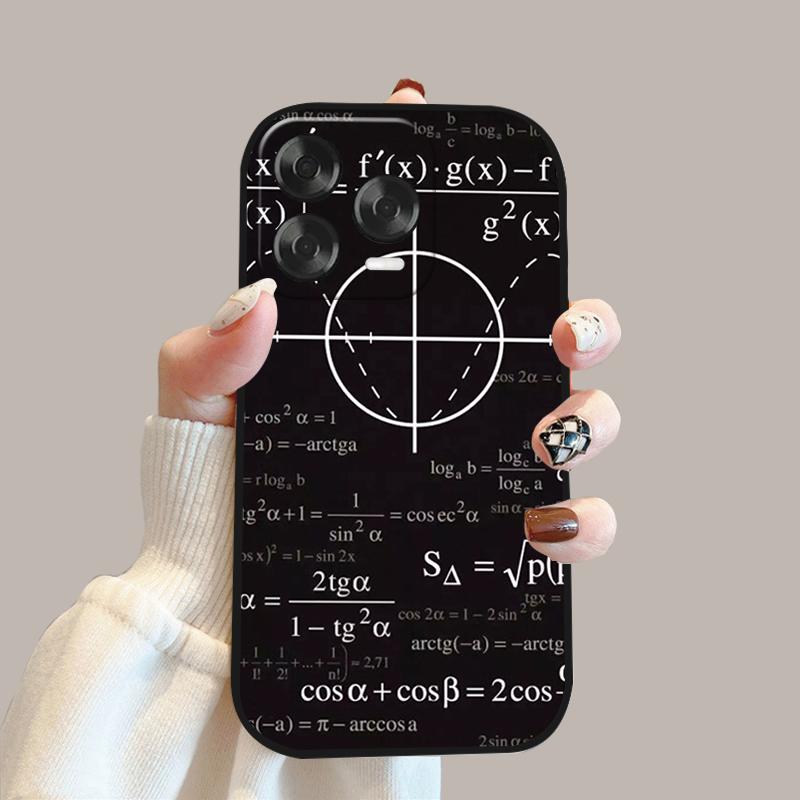 sin α cos α
logₐ b/c = logₐ b – lo
(x) = f′(x)·g(x) – f
(x) g²(x)
cos 2α = c
+ cos² α = 1
–a) = –arctga
logₐ b = log꜀ b / log꜀ a
= r logₐ b
tg²α+1 = 1/sin² α = cosec²α
sin α
os x)² = 1 – sin 2x
S_Δ = √p(p
α = 2tgα / 1 – tg²α
tgx =
cos 2α = 1 – 2 sin² α
arctg(–a) = –arctg
+ 1/1! + 1/2! + ... + 1/n!) = 2,71
cosα + cosβ = 2cos
(–a) = π – arccos a
2sin α